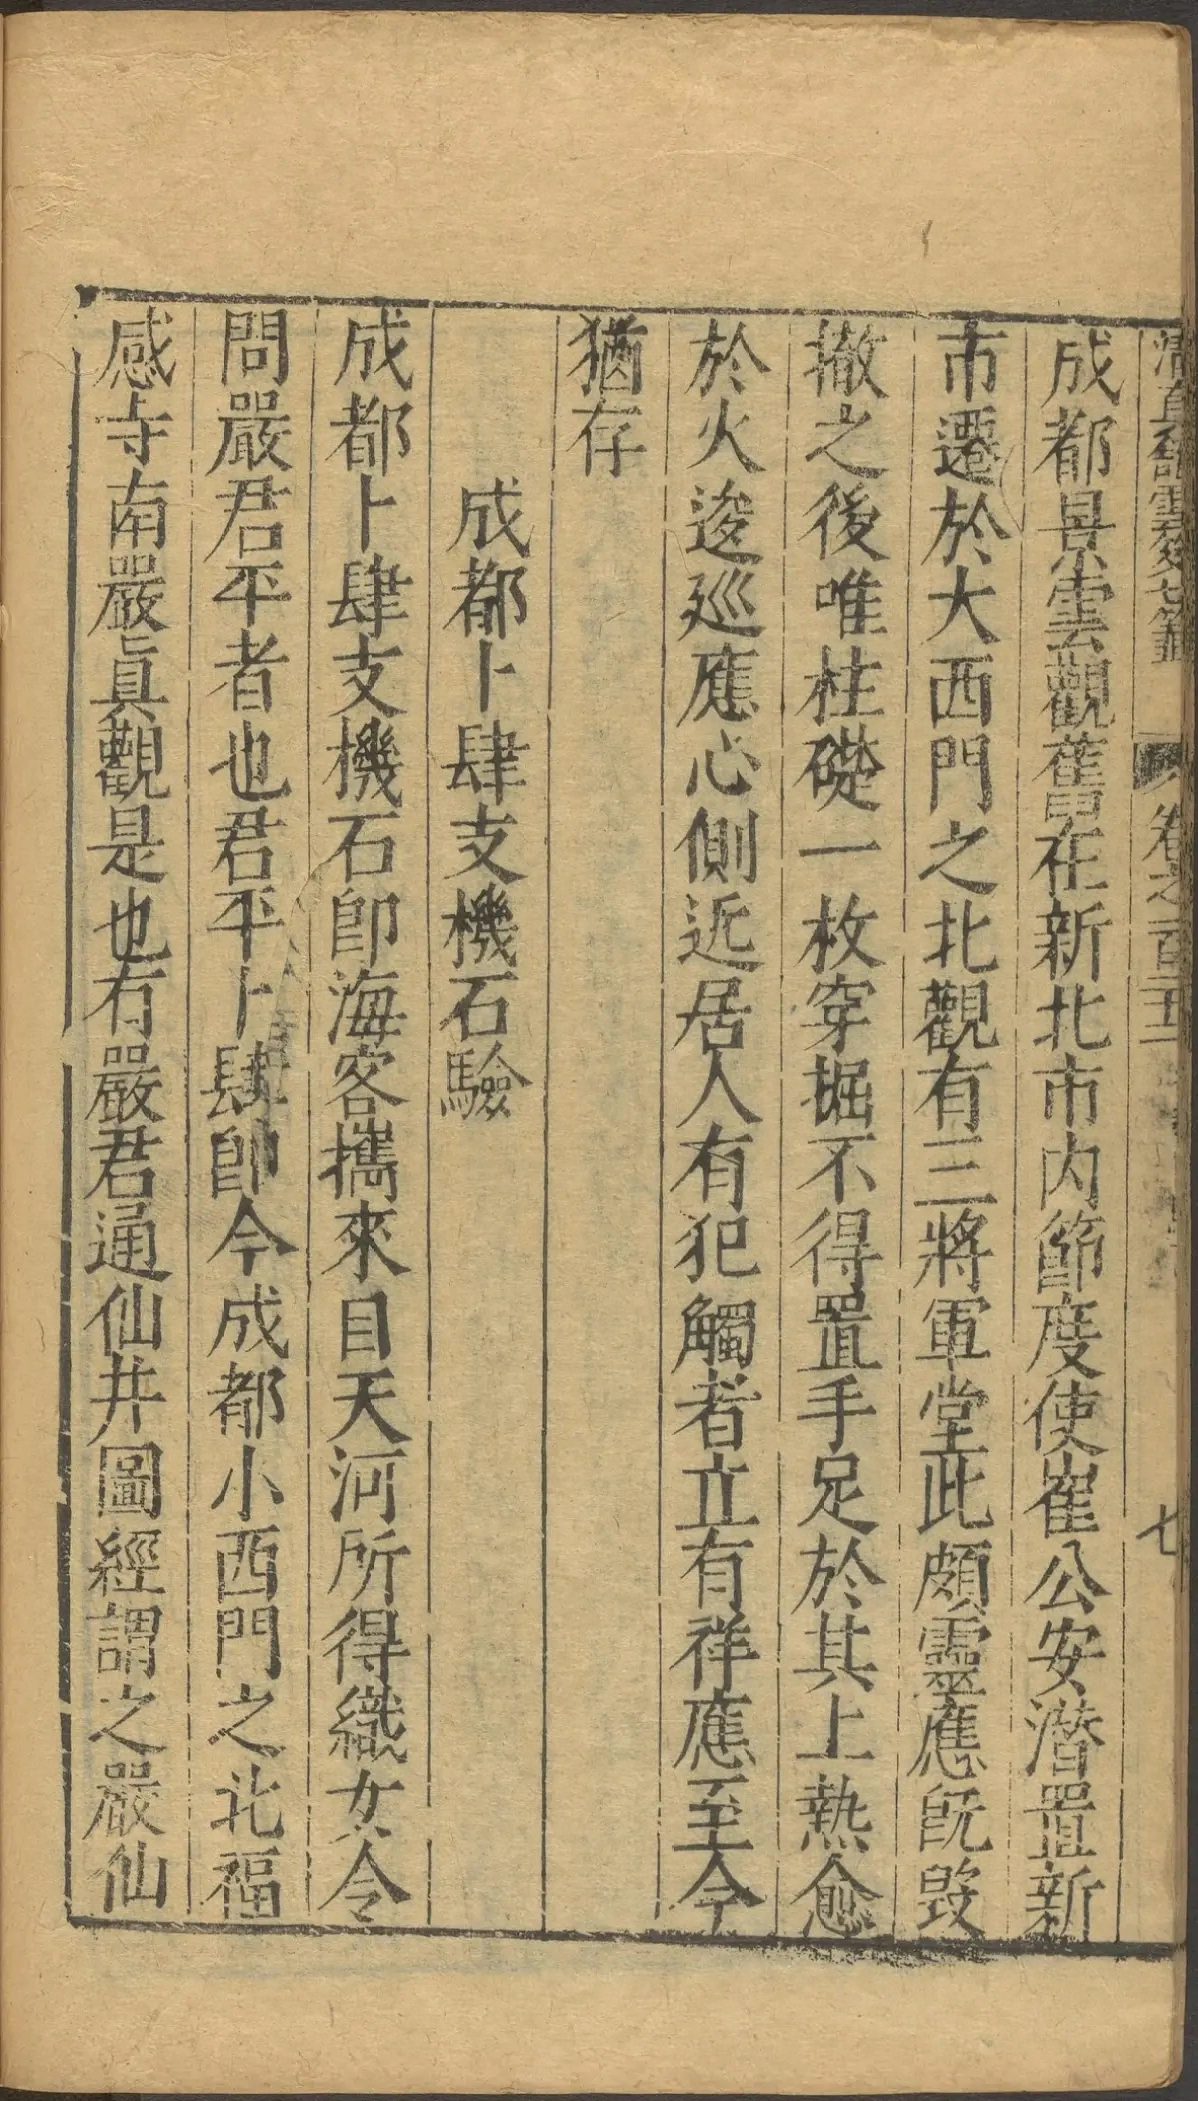 清真館雲笈七籤 卷之一百二十二 七
成都景雲觀舊在新北市內節度使崔公安潛置新
市遷於大西門之北觀有三將軍堂此頗靈應旣毀
撤之後唯柱礎一枚穿掘不得置手足於其上熱愈
於火逡巡應心側近居人有犯觸者立有祥應至今
猶存
成都卜肆支機石驗
成都卜肆支機石卽海客攜來自天河所得織女令
問嚴君平者也君平卜肆卽今成都小西門之北福
感寺南嚴眞觀是也有嚴君通仙井圖經謂之嚴仙